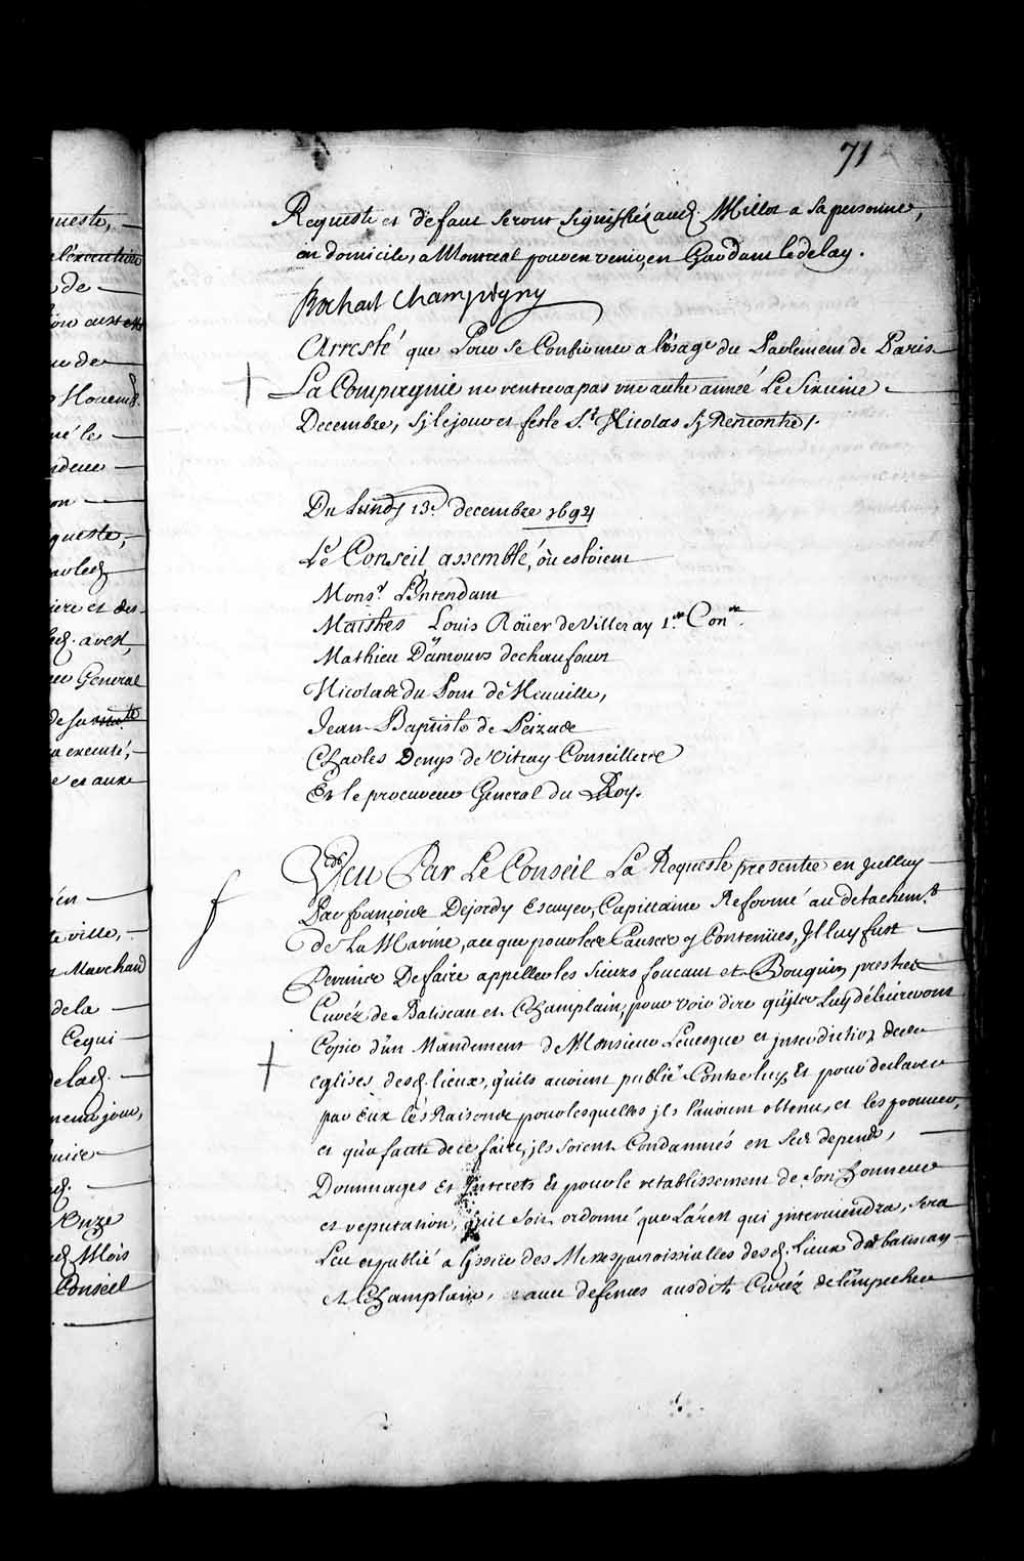 71
Requeste et defaut seront signiffiéz aud. Millot a sa personne,
ou domicile, a Montreal pour en venir, en Gardant le delay.
Bochart Champigny
Arresté que Pour se Conformer a l'ûsage du Parlement de Paris
La Compagnie ne rentrera pas vne autre année Le Sixiéme
Decembre, sy le jour et feste St. Nicolas sy Rencontre /.
Du Lundy 13e. decembre 1694
Le Conseil assemblé, où estoient
Monsr. L'Intendant
Maistres Louis Roüer de Villeray 1er. Coner.
Mathieu Damours deschaufour
Nicolas du Pont de Neuuille,
Jean-Baptiste de Peizas
Charles Denys de Vitray Conseillers
Et le procureur General du Roy.
Veu Par Le Conseil La Requeste presentée en Jcelluy
Par françois Dejordy Escuyer, Capittaine Reformé au detachemt.
de La Marine, ace que pour les Causes y Contenües, Jl luy fust
Permis De faire appeller les sieurs foucaut et Bouquin prestres
Curéz de Batiscan et Champlain, pour voir dire qu'ils Luy déliureront
Copie d'un Mandement de Monsieur L'euesque et jnterdiction des
eglises desd. lieux, qu'ils auoient publié Contre luy, Et pour declarer
par Eux les Raisons pour lesquelles jls l'auoient obtenu, et les prouuer,
et qu'a faute de ce faire, jls soient Condamnés en ses depens,
Dommages Et Jnterests Et pour le retablissement de son honneur
et reputation, qu'il soit ordonné que L'arest qui jnteruiendra, sera
Leu et publié a l'jssüe des Messes parroissialles desd. lieux de batiscan
et Champlain, auec defenses ausdits Curéz de l'empecher
queste,
l'execution
de
de
né le
on
queste,
iere et des
General
a executé,
et aux
en
ville,
Marchand
de la
Ce qui
de lad.
jour,
Onze
Mois
Conseil